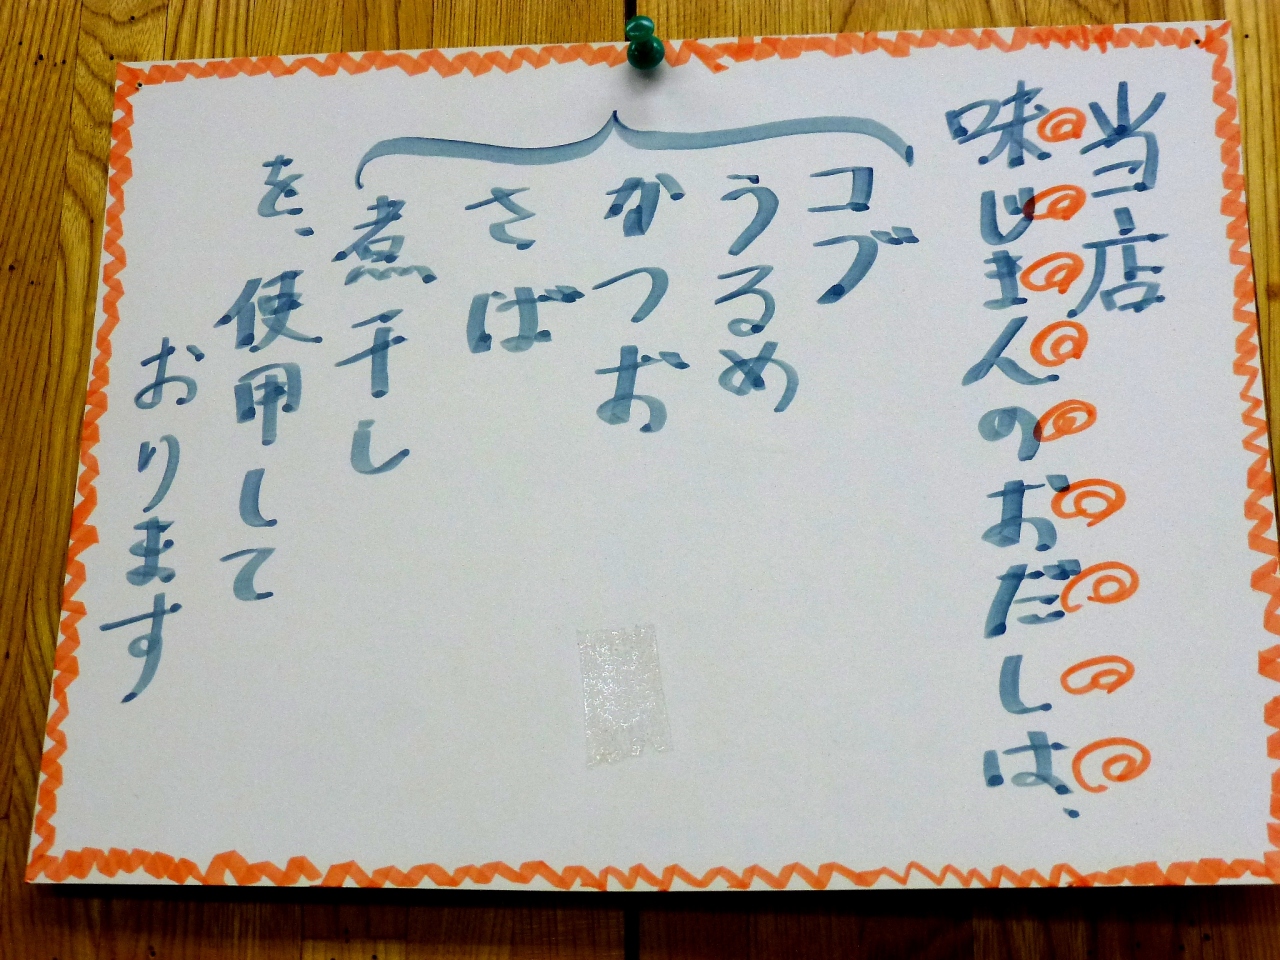 当店
味じまんのおだしは、
コブ
うるめ
かつお
さば
煮干し
を、使用して
おります